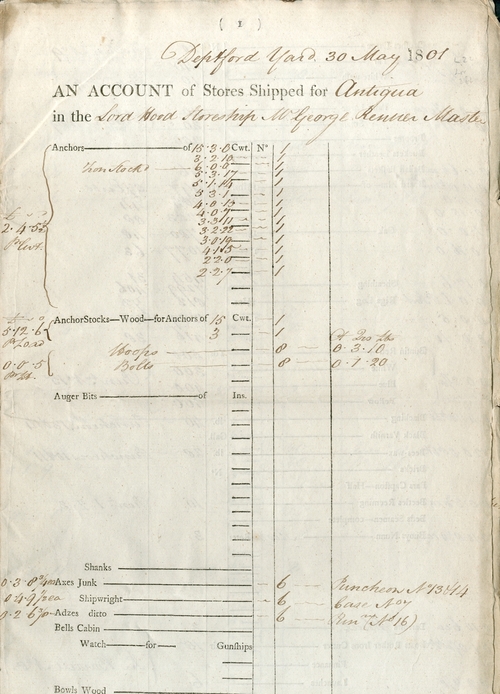 ( 1 )
Deptford Yard. 30 May 1801
AN ACCOUNT of Stores Shipped for Antigua
in the Lord Hood Storeship Mr George Renner Master
Anchors of 15.3.0 Cwt. No 1
3.2.10 1
Iron Stock'd 6.0.0 1
5.3.17 1
5.1.14 1
5.3.1 1
4.0.13 1
4.0.7 1
3.3.11 1
3.2.22 1
3.0.19 1
4.1.15 1
2.3.0 1
2.2.7 1
2.4.5
Pr Cwt.
Anchor Stocks—Wood—for Anchors of 15 Cwt. 1
3 1
5.12.6
Pr Load
Ct Qrs lbs
Hoops 8 0.3.10
Bolts 8 0.1.20
0.0.5
Pr lb.
Auger Bits of Ins.
Shanks
0.3.8 Axes Junk 6 Puncheon No 13 & 14
0.4.9½ ea Shipwright 6 Case No 7
0.2.6 Adzes ditto 6 Pun No 16)
Bells Cabin
Watch—for—Gunships
Bowls Wood